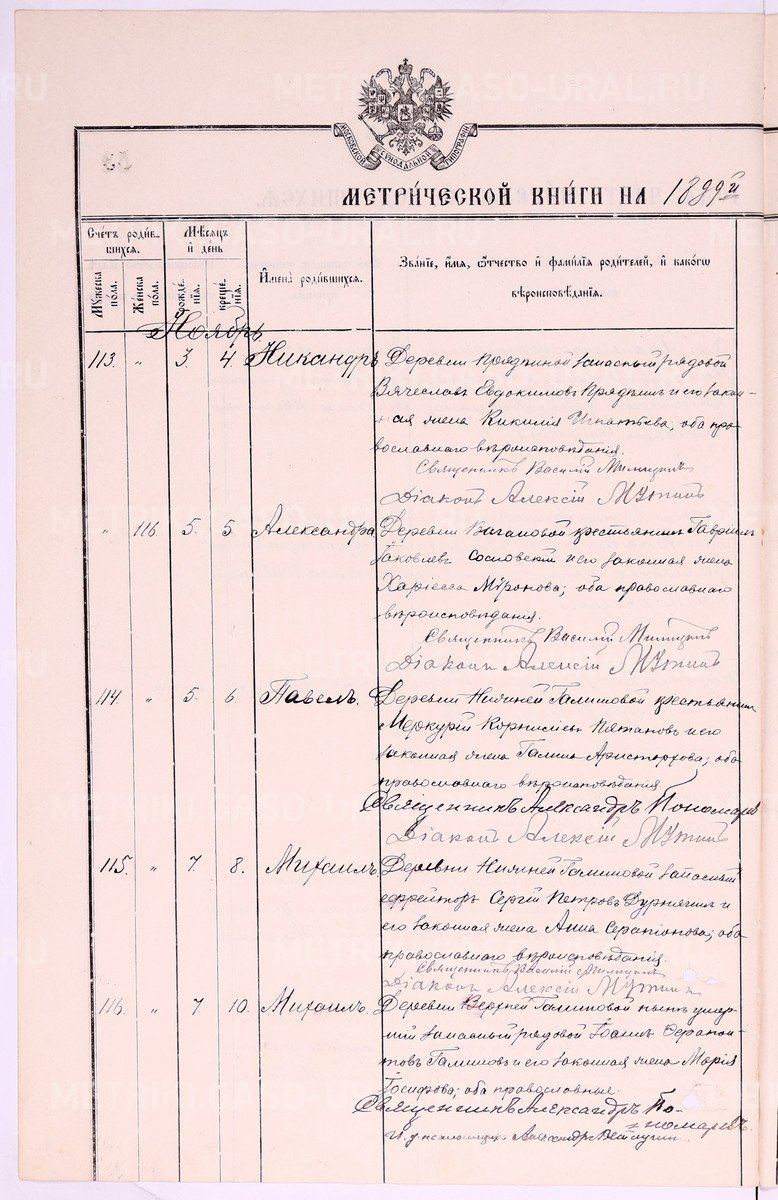 МОСКОВСКОЙ СУНОДАЛЬНОЙ ТИПОГРАФІИ
МЕТРИ́ЧЕСКОЙ КНИ́ГИ НА 1899й
Сче́тъ роди́в-
шихсѧ.
Мꙋ́жеска
по́ла.
Же́нска
по́ла.
Мѣ́сѧцъ
и҆ де́нь
рожде́-
нїѧ.
креще́-
нїѧ.
И҆мена̀ роди́вшихсѧ.
Зва́нїе, и҆́мѧ, ѻ҆́тчество и҆ фами́лїѧ роди́телей, и҆ како́гѡ
вѣроисповѣ́данїѧ.
Ноябрь.
113. " 3. 4. Никандръ Деревни Прядкиной запасный рядовой
Вячеславъ Евдокимовъ Прядкинъ и его закон-
ная жена Кикилія Игнатьева, оба пра-
вославнаго вѣроисповѣданія.
Священникъ Василій
Діаконъ Алексій
" 116. 5. 5. Александра Деревни Вагановой крестьянинъ Гавріилъ
Іаковлевъ Сосновскій и его законная жена
Харіесса Мѵронова; оба православнаго
вѣроисповѣданія.
Священникъ Василій
Діаконъ Алексій
114. " 5. 6. Павелъ. Деревни Нижней Галишовой крестьянинъ
Меркурій Корниліевъ Пятановъ и его
законная жена Галина Аристархова; оба
православнаго вѣроисповѣданія
Священникъ Александръ Пономаревъ
Діаконъ Алексій
115. " 7. 8. Михаилъ Деревни Нижней Галишовой запасный
ефрейторъ Сергій Петровъ Дурницинъ и
его законная жена Анна Серапіонова; оба
православнаго вѣроисповѣданія.
Священникъ Василій
Діаконъ Алексій
116. " 7 10. Михаилъ. Деревни Верхней Галишовой нынѣ умер-
шій запасный рядовой Іоаннъ Ферапон-
товъ Галишовъ и его законная жена Марія
Іосифова; оба православные.
Священникъ Александръ По-
номаревъ.
И. д. псаломщика Александръ